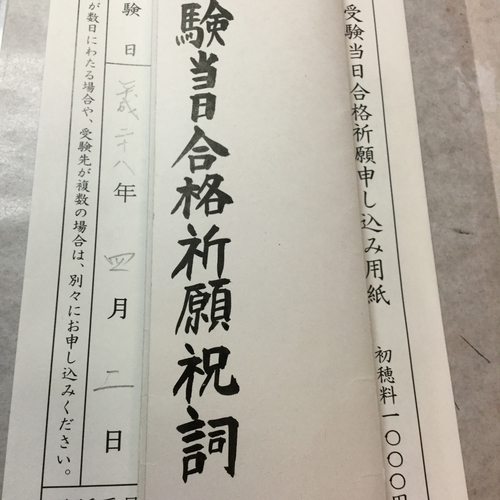 受験当日合格祈願申し込み用紙 初穂料一〇〇〇円
験当日合格祈願祝詞
験日 平成二十八年 四月 二日
が数日にわたる場合や、受験先が複数の場合は、別々にお申し込みください。